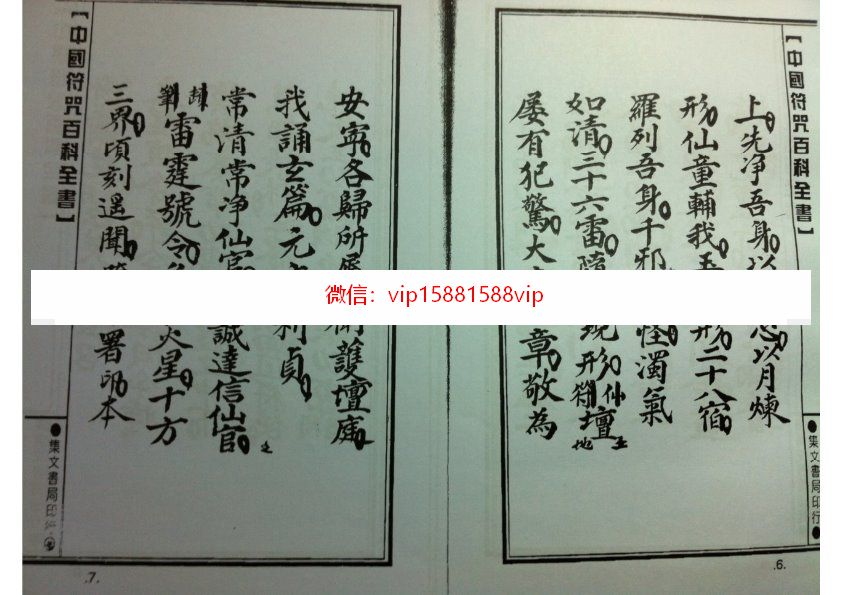 【中國符咒百科全書】
上先净吾身以
忌以月煉
形仙童輔我
形二十八宿
羅列吾身千邪
怪濁氣
如清三十六雷
現形仙壇
形符土地
主
屡有犯驚大
章敬為
●集文書局印行●
.6.
微信：vip15881588vip
【中國符咒百科全書】
安寧各歸所
衛護壇庭
我誦玄篇元
利貞
常清常净仙官
誠達信仙官
之
雷霆號令
火星十方
三界頃刻遥聞
署印本
●集文書局印行
.7.